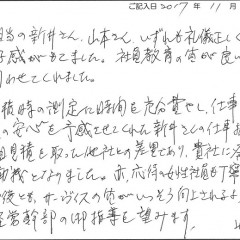 ご記入日 2017年 11月
担当の新井さん、山本さん、いずれも礼儀正しく
好感がもてました。社員教育の質が良い
積時の測定に時間を充分費やし、仕事
の安心を予感せてくれた新井さんの仕事
自見積を取った他社との差異であり、貴社に
動機となりました。亦、応待の女性社員も丁寧
後とも、サーヴィスの質がいっそう向上されるよ
経営幹部の御指導を望みます。